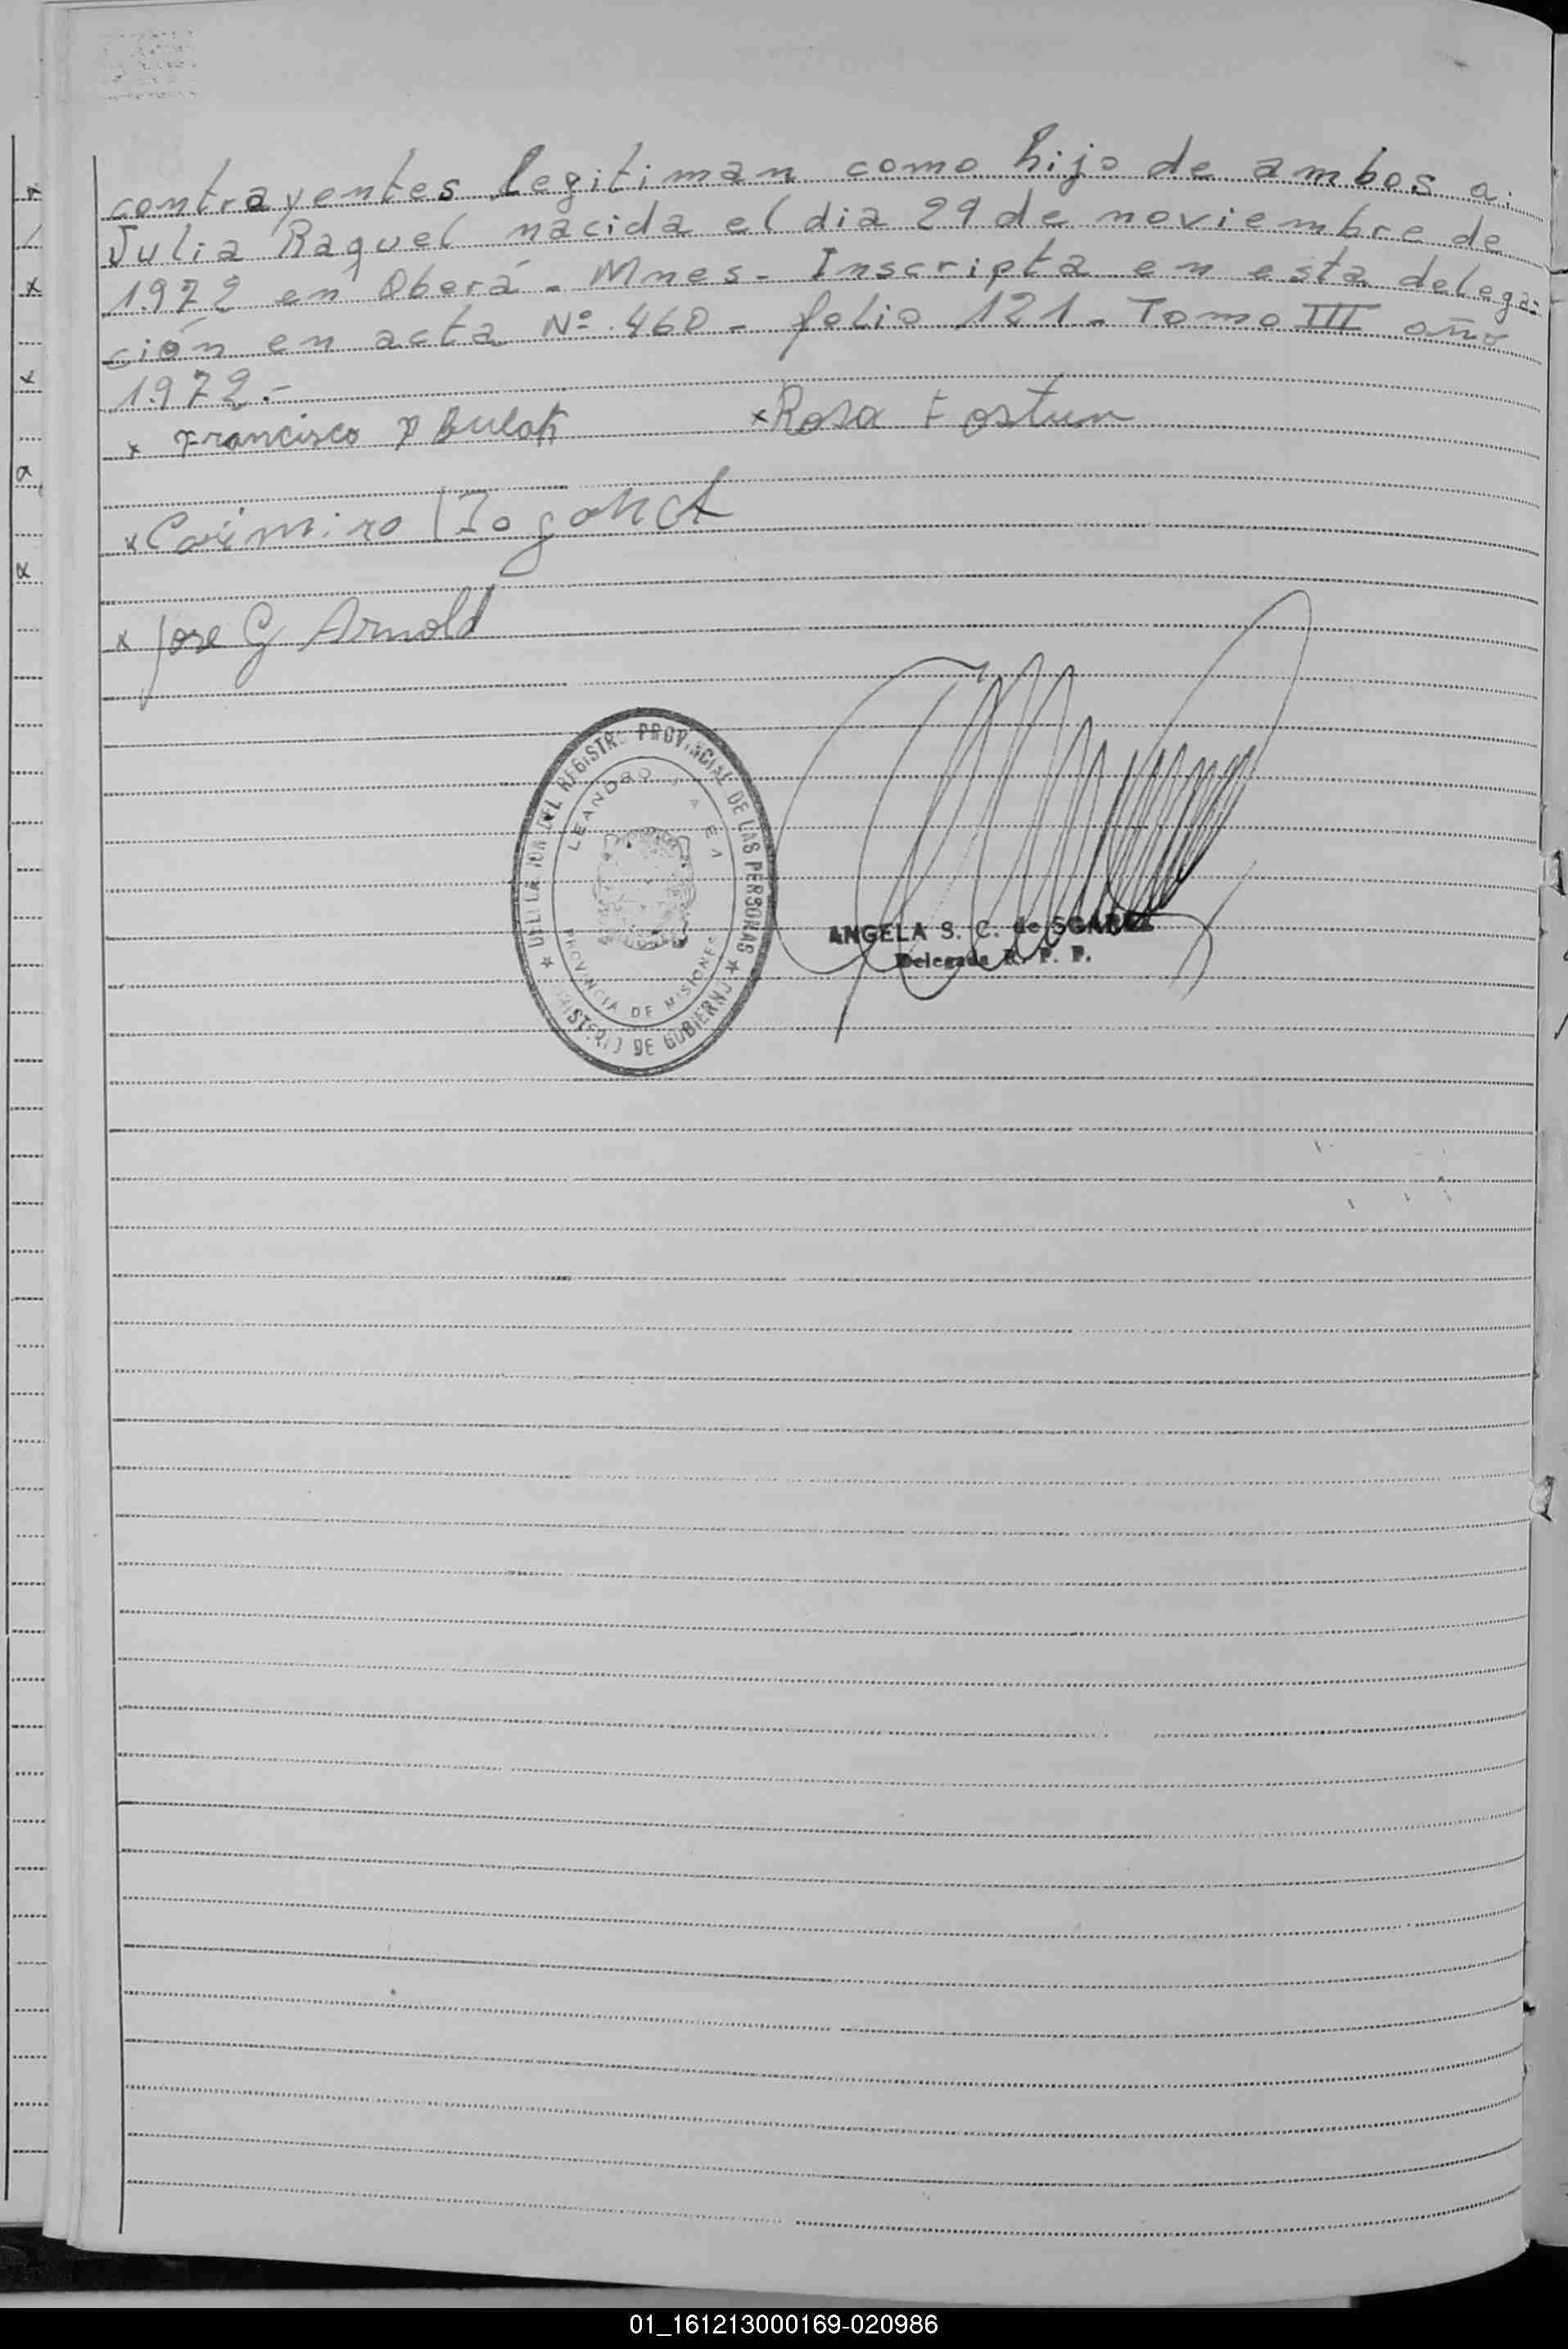 contrayentes legitiman como hijo de ambos a:
Julia Raquel nacida el dia 29 de noviembre de
1.972 en Oberá - Mnes - Inscripta en esta delega-
ción en acta Nº 460 - folio 121 - Tomo III año
1.972.-
x Francisco P x Rosa F ostun
x Casimiro
x Jose G Arnold
DEL REGISTRO PROVINCIAL DE LAS PERSONAS
LEANDRO
PROVINCIA DE MISIONES
MINISTERIO DE GOBIERNO
ANGELA S. C. de
Delegada R. P. P.
01_161213000169-020986